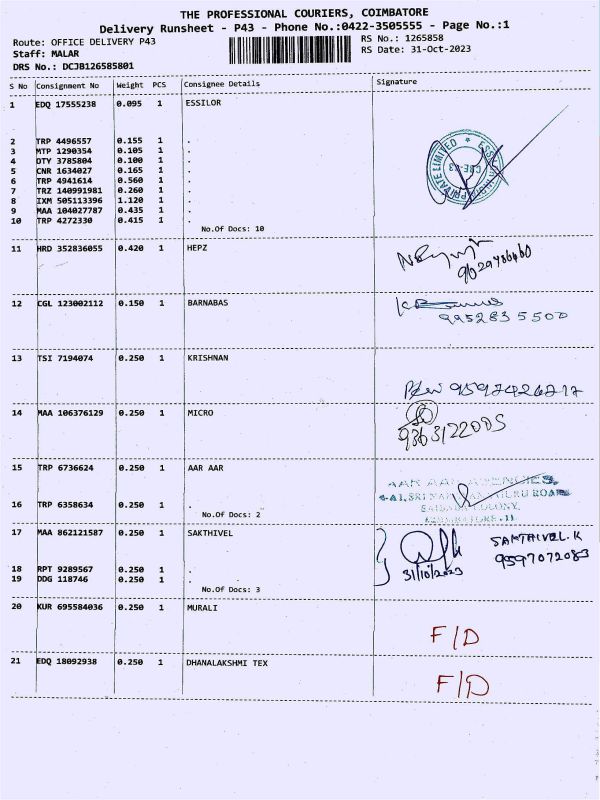 THE PROFESSIONAL COURIERS, COIMBATORE
Delivery Runsheet - P43 - Phone No.:0422-3505555 - Page No.:1
Route: OFFICE DELIVERY P43
RS No.: 1265858
Staff: MALAR
RS Date: 31-Oct-2023
DRS No.: DCJB126585801
S No Consignment No Weight PCS Consignee Details Signature
1 EDQ 17555238 0.095 1 ESSILOR
2 TRP 4496557 0.155 1 .
3 MTP 1290354 0.105 1 .
4 OTY 3785804 0.100 1 .
5 CNR 1634027 0.165 1 .
6 TRP 4941614 0.560 1 .
7 TRZ 140991981 0.260 1 .
8 IXM 505113396 1.120 1 .
9 MAA 104027787 0.435 1 .
10 TRP 4272330 0.415 1 .
PRIVATE LIMITED
No.Of Docs: 10
11 HRD 352836055 0.420 1 HEPZ
12 CGL 123002112 0.150 1 BARNABAS
9952835500
13 TSI 7194074 0.250 1 KRISHNAN
14 MAA 106376129 0.250 1 MICRO
15 TRP 6736624 0.250 1 AAR AAR
AAR AAR AGENCIES,
16 TRP 6358634 0.250 1 .
COLONY,
No.Of Docs: 2
17 MAA 862121587 0.250 1 SAKTHIVEL
SAKTHIVEL.K
9597072083
31/10/2023
18 RPT 9289567 0.250 1 .
19 DDG 118746 0.250 1 .
No.Of Docs: 3
20 KUR 695584036 0.250 1 MURALI
F/D
21 EDQ 18092938 0.250 1 DHANALAKSHMI TEX
F/D